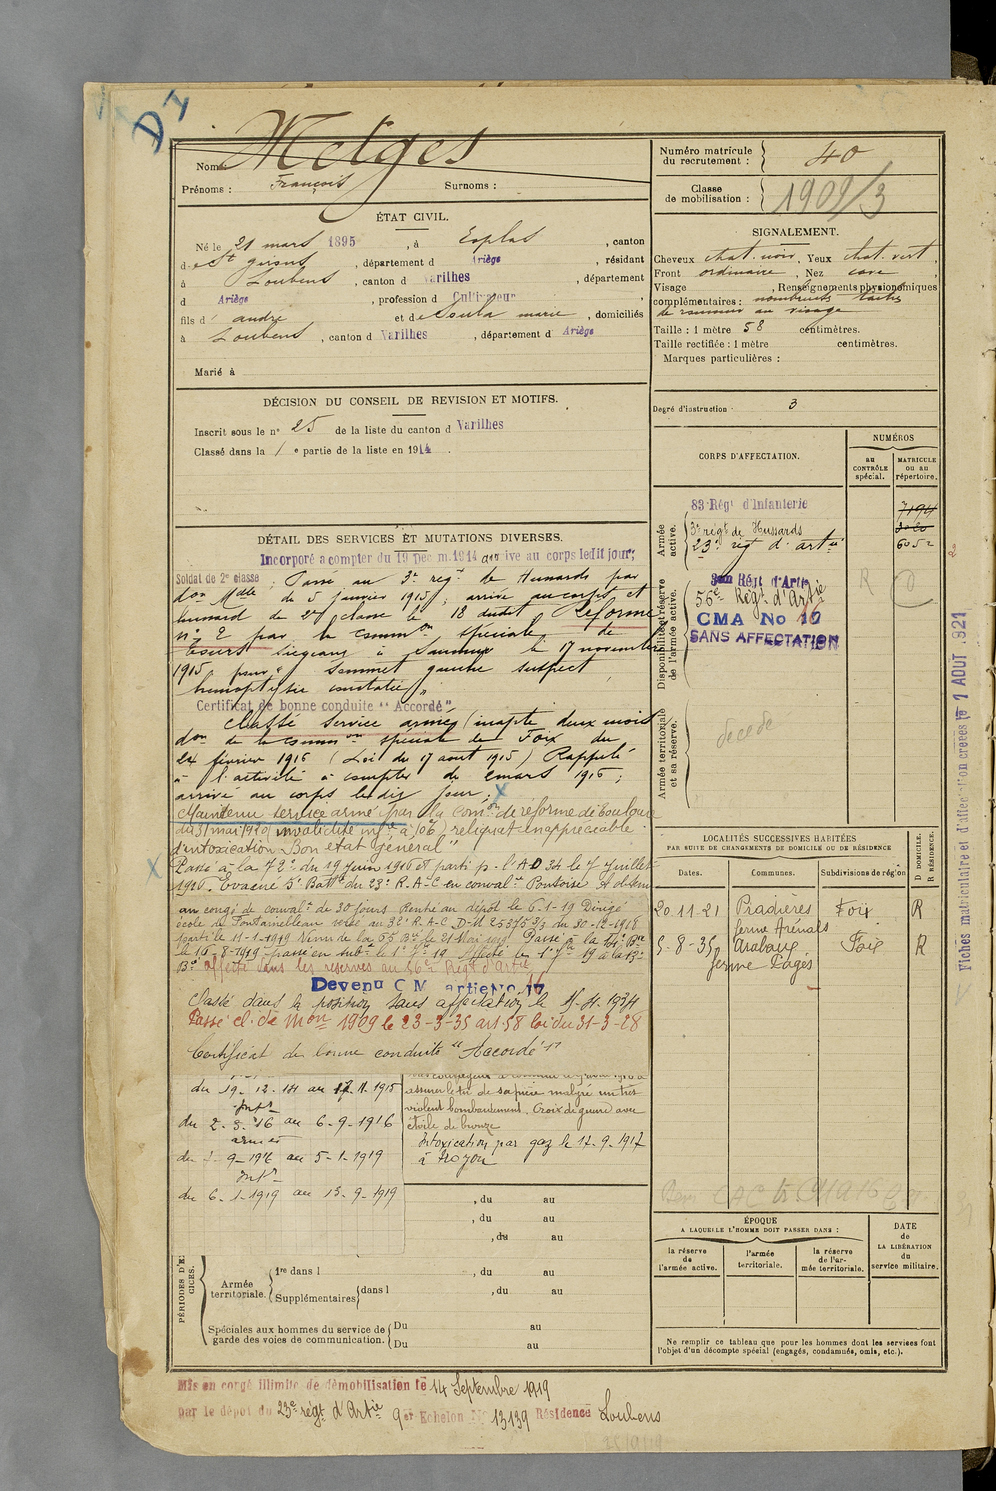 D I
Nom : Metges
Prénoms : François Surnoms :
ÉTAT CIVIL.
Né le 21 mars 1895, à Esplas, canton
de St Girons, département d Ariège, résidant
à Loubens, canton d Varilhes, département
d Ariège, profession d Cultivateur,
fils d' andré et de Soula marie, domiciliés
à Loubens, canton d Varilhes, département d Ariège
Marié à
DÉCISION DU CONSEIL DE REVISION ET MOTIFS.
Inscrit sous le n° 25 de la liste du canton d Varilhes
Classé dans la 1 e partie de la liste en 1914.
DÉTAIL DES SERVICES ET MUTATIONS DIVERSES.
Incorporé a compter du 19 Déc m. 1914 arrive au corps ledit jour;
Soldat de 2e classe; Passé au 3e régt de Hussards par
don Mlle de 5 janvier 1915, arrivé au corps et
hussard de 2e classe le 18 dudit. Réformé
n° 2 par la common spéciale de
Tours siégeant à Saumur le 17 novembre
1915 pour " Sommet gauche suspect
hémoptysie constatée"
Certificat de bonne conduite "Accordé"
Classé service armé (inapte deux mois
don de la common spéciale de Foix du
24 février 1916 (Loi du 17 aout 1915) Rappelé
à l'activité à compter du 2 mars 1916;
arrivé au corps ledit jour;
Maintenu service armé par la Comon de réforme de Toulouse
du 31 mai 1920 (invalidité infre à 10%) reliquat inappréciable
d'intoxication "Bon état général"
Passé à la 72e du 19 juin 1916 et parti p. l'AD 34 le 7 juillet
1916. Evacué 5e Batie du 23e R.A.C en convalce Pontoise
en congé de convalce de 30 jours Rentré au dépôt le 6-1-19 Dirigé
école de Fontainebleau versé au 32e R.A.C. D.M 25375 3/3 du 30-12-1918
parti le 11-1-1919 Venu de la 65 Bie le 21 Mai 1919. Passé à la
Bie affecté dans les réserves au 56e Régt d'Artie
Devenu C M artie No 17
Classé dans la position sans affectation le
Passé cl. de mon 1909 le 23-3-35 art 58 loi du 31-3-28
Certificat de bonne conduite "Accordé"
du 19-12-14 au 17-11-1915
Intr
du 2-3-16 au 6-9-1916
armées
du 7-9-1916 au 5-1-1919
Intr
du 6-1-1919 au 13-9-1919
assurer le tir de sa pièce malgré un très
violent bombardement. Croix de guerre avec
étoile de bronze
Intoxication par gaz le 12-9-1917
à Troyon
, du au
, du au
, du au
PÉRIODES D'E
CICES.
Armée territoriale. 1re dans l , du au
Supplémentaires dans l , du au
Spéciales aux hommes du service de garde des voies de communication. Du au
Du au
Mis en congé illimité de démobilisation le 14 Septembre 1919
par le dépot du 23e régt d'Artie 9e Echelon No 13139 Résidence Loubens
Numéro matricule du recrutement : 40
Classe de mobilisation : 1909/3
SIGNALEMENT.
Cheveux chat. noir, Yeux chat. vert,
Front ordinaire, Nez cave,
Visage , Renseignements physionomiques
complémentaires : nombreuses taches
de rousseur au visage
Taille : 1 mètre 58 centimètres.
Taille rectifiée : 1 mètre centimètres.
Marques particulières :
Degré d'instruction : 3
CORPS D'AFFECTATION.
NUMÉROS
au CONTRÔLE spécial.
MATRICULE ou au répertoire.
Armée active.
83 Régt d'Infanterie 7194
3e régt de Hussards
23e régt d'artie 6052
Disponibilité et réserve de l'armée active.
56e Régt d'Artie
CMA No 17
SANS AFFECTATION
Armée territoriale et sa réserve.
décédé
LOCALITÉS SUCCESSIVES HABITÉES
PAR SUITE DE CHANGEMENTS DE DOMICILE OU DE RÉSIDENCE
Dates. Communes. Subdivisions de région D DOMICILE. R RÉSIDENCE.
20-11-21 Pradières Foix R
ferme Arénals
5-8-35 Arabaux Foix R
ferme Pagès
ÉPOQUE
A LAQUELLE L'HOMME DOIT PASSER DANS :
la réserve de l'armée active.
l'armée territoriale.
la réserve de l'armée territoriale.
DATE de LA LIBÉRATION du service militaire.
Ne remplir ce tableau que pour les hommes dont les services font
l'objet d'un décompte spécial (engagés, condamnés, omis, etc.).
Fiches matriculaire et d'affectation créées le 1 AOUT 1921